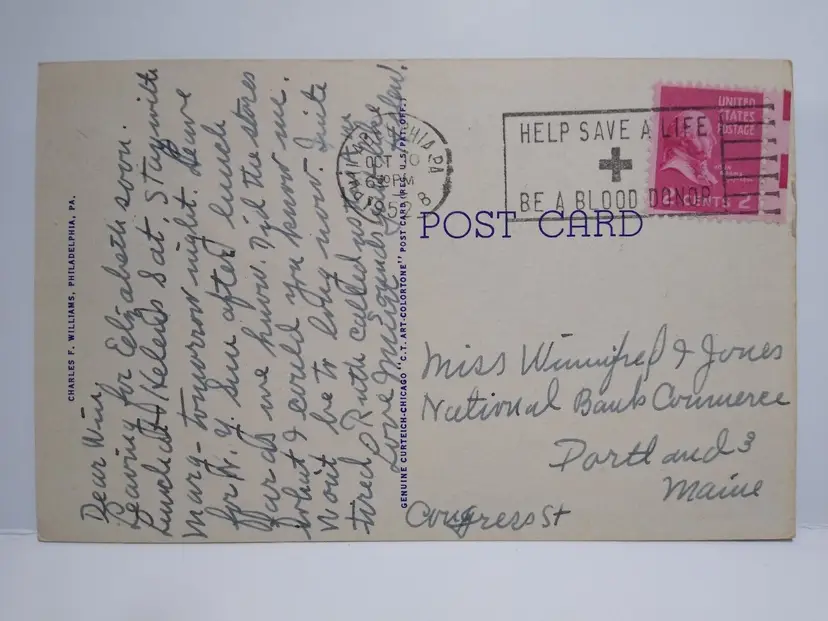 CHARLES F. WILLIAMS, PHILADELPHIA, PA.
Dear Win,
Leaving for Elizabeth soon.
Lunch at Helens Sat. Stay with
Mary - tomorrow night. Leave
for N.Y. Sun after lunch
far as we know. Did the stores
but I could you know me.
Wont be to long now. Quite
tired. Ruth called us
Love
GENUINE CURTEICH-CHICAGO "C.T. ART-COLORTONE" POST CARD (REG. U.S. PAT. OFF.)
PA
OCT
PM
1952
8
HELP SAVE A LIFE
BE A BLOOD DONOR
UNITED
STATES
POSTAGE
2 CENTS 2
POST CARD
Miss Winnifred J Jones
National Bank Commerce
Portland 3
Maine
Congress St